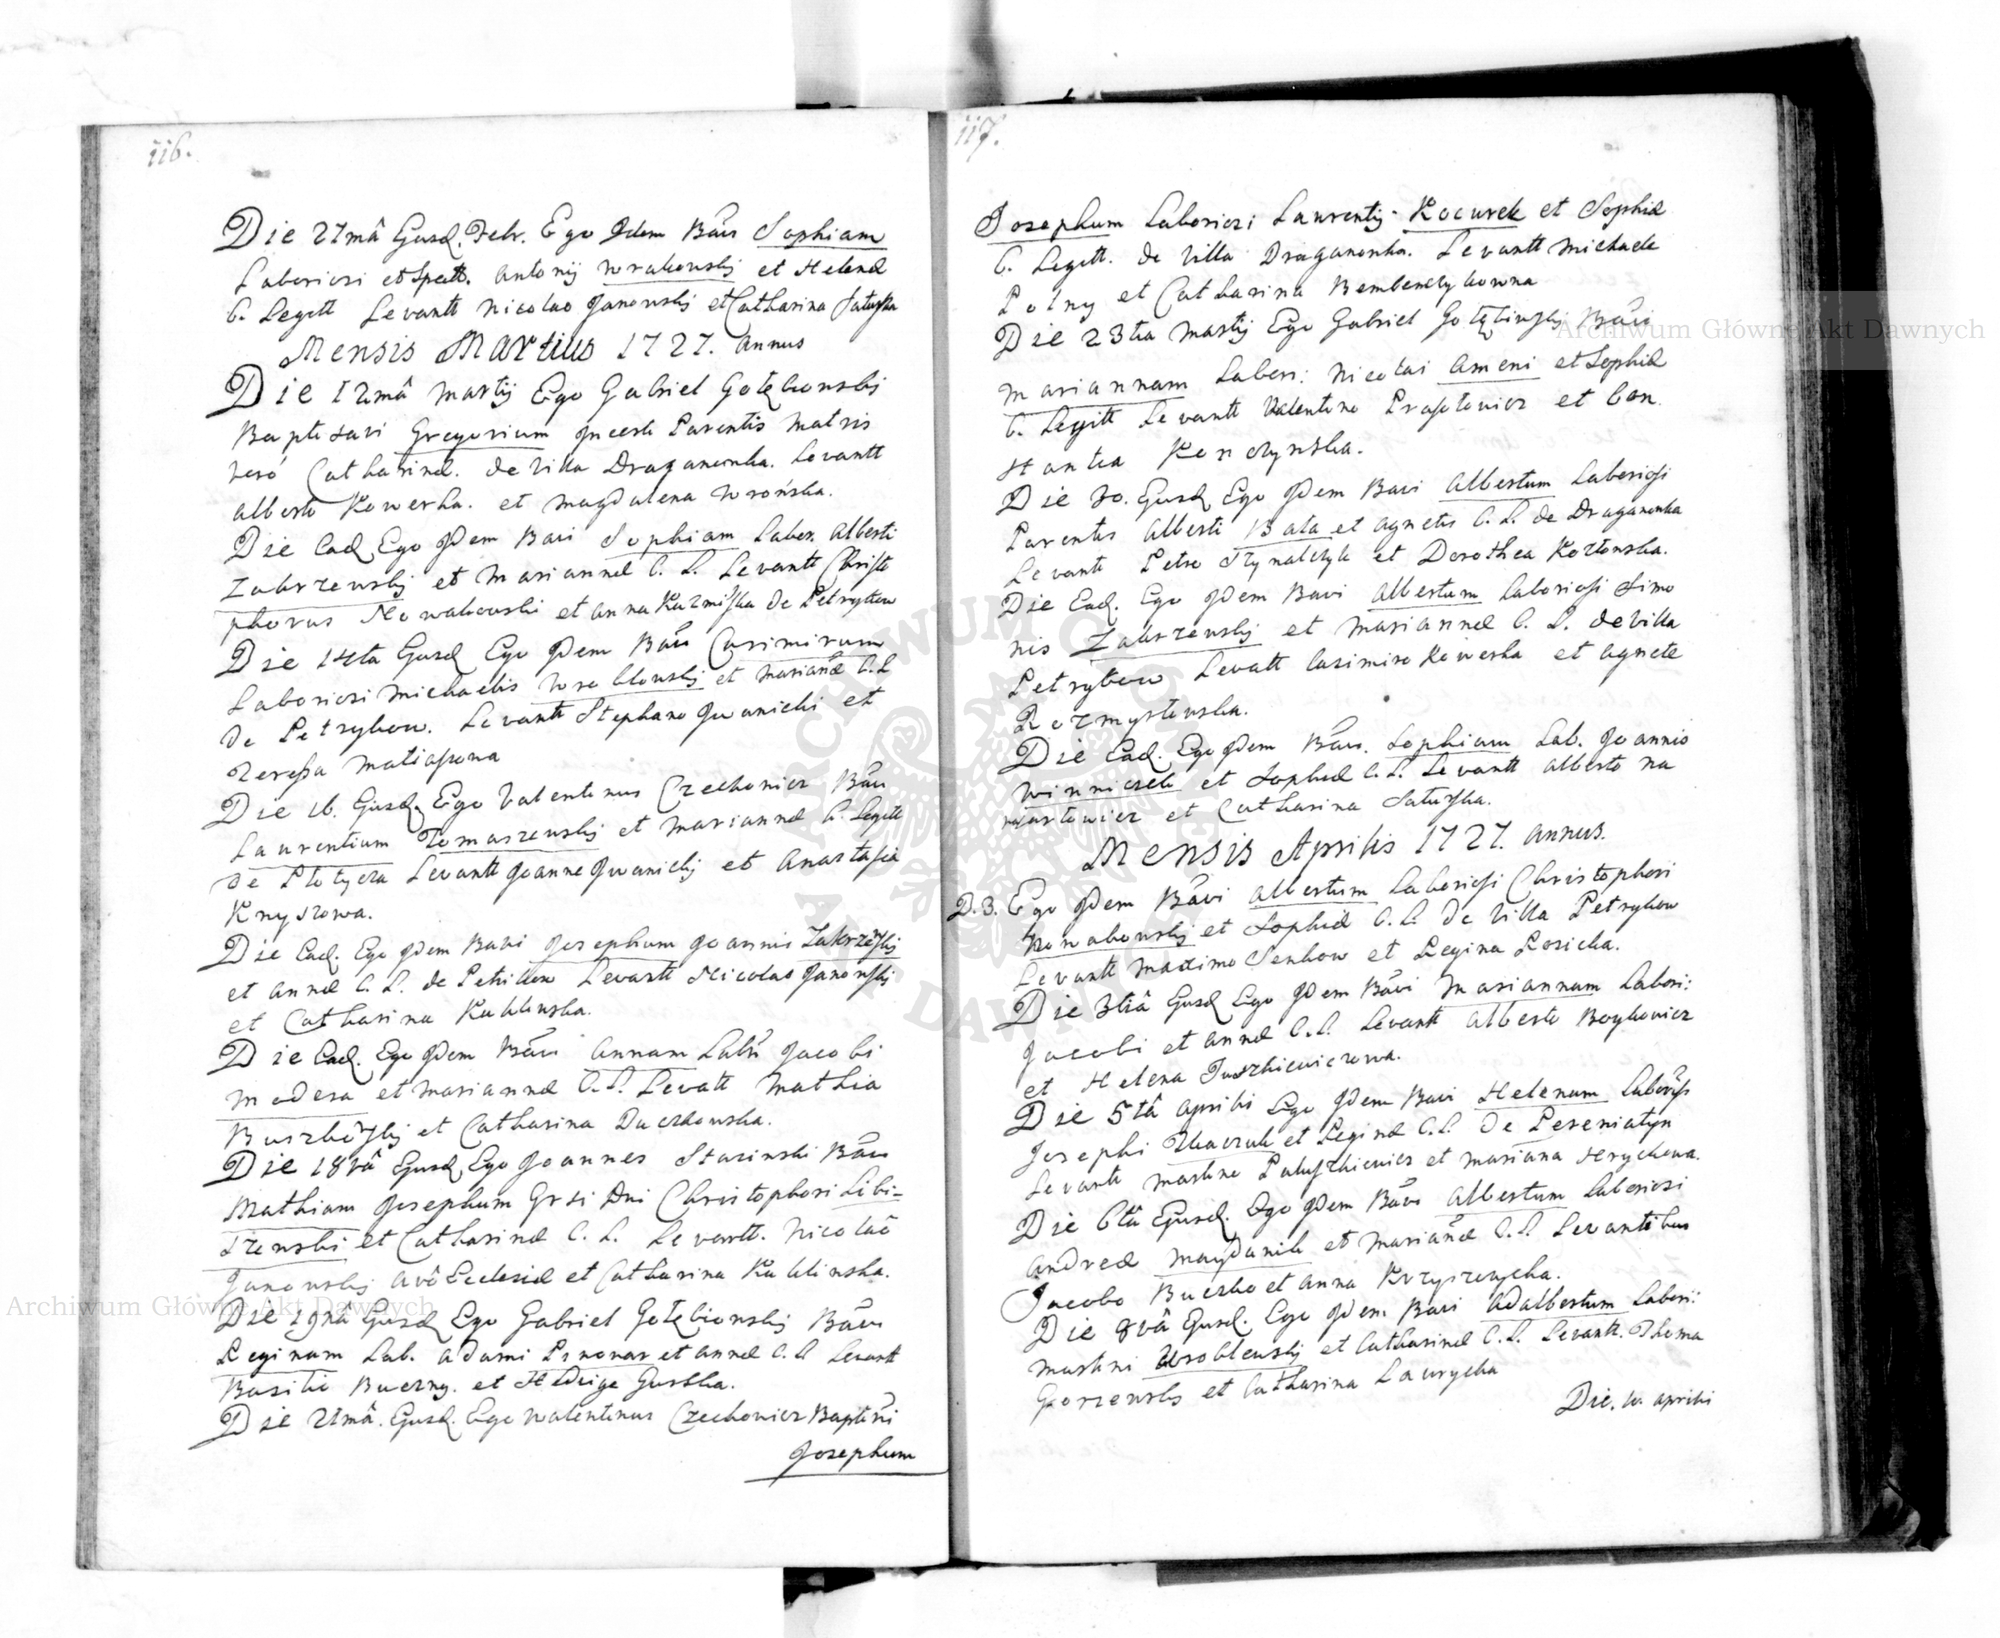 116.
Die 21mâ Eusd. Febr. Ego Idem Bāvi Sophiam
Laboriosi et Spett. Antonij Wrakowskj et Helenæ
C. Legitt Levantt Nicolao Janowskj et Catharina
Mensis Martius 1727. Annus
Die 12mâ Martij Ego Gabriel Gołębiowskj
Baptisavi Gregorium Incerti Parentis Matris
verò Catharinæ. de Villa Draganowka. Levantt
Alberto Kowerka. et Magdalena Wrońska.
Die Ead. Ego Idem Bavi Sophiam Labor. Alberti
Zakrzewskj et Mariannæ C. L. Levantt Christo
phorus Nowakowski et Anna Kuzmiska de Petrykow
Die 14ta Eusd Ego Idem Bāvi Casimirum
Laboriosi Michaelis Wroblowskj et Marianæ C. L
de Petrykow. Levantt Stephano Jwanicki et
Teressa Matiasowa
Die 16. Eusd. Ego Valentinus Czechowicz Bāvi
Laurentium Tomaszewskj et Mariannæ C. Legitt
de Płotycza Levantt Joanne Jwanickj et Anastasia
Knyszowa.
Die Ead. Ego Idem Bavi Josephum Joannis
et Annæ C. L. de Levantt Nicolao Janowskj
et Catharina Kublinska.
Die Ead. Ego Idem Bāvi Annam Jacobi
Madera et Mariannæ C. L. Levatt Mathia
et Catharina Daczkowska.
Die 18vâ Eusd Ego Joannes Stasinski Bāvi
Mathiam Josephum Gnsi Dni Christophori Libi=
szewski et Catharinæ C. L. Levantt. Nicolaô
Janowskj avô Ecclesiæ et Catharina Kublinska.
Die 19nâ Eusd Ego Gabriel Gołębiowskj Bāvi
Reginam Lab. Adami et Annæ C. L Levantt
Basilio Buczny. et Hedvige Guska.
Die 21mâ. Eusd. Ego Walentinus Czechowicz
Josephum
117.
Josephum Laboriosi Laurentij Kocurek et Sophiæ
C. Legitt. de Villa Draganowka. Levantt Michaele
Polny et Catharina
Die 23tia Martij Ego Gabriel Bāvi
Mariannam Labori: Nicolai Ameni et Sophiæ
C. Legitt Levantt Valentino et Con
stantia
Die 30. Eusd Ego Idem Bavi Albertum Laboriosi
Parentis Alberti Bała et Agnetis C. L. de Draganowka
Levantt Petro et Dorothea Kozłowska.
Die Ead. Ego Idem Bavi Albertum Laboriosi Simo
nis Zakrzewskj et Mariannæ C. L. de Villa
Petrykow Levatt Casimiro Kowerka et Agnete
Rozmysłowska.
Die Ead. Ego Idem Bāvi. Sophiam Lab. Joannis
Winniczek et Sophiæ C. L. Levantt Alberto
et Catharina
Mensis Aprilis 1727. Annus.
D. 3. Ego Idem Bāvi Albertum Laboriosi Christophori
Nowakowskj et Sophiæ C. L. de Villa Petrykow
Levantt Maximo Senkow et Regina Rosicka.
Die 3tiâ Eusd Ego Idem Bāvi Mariannam Labori:
Jacobi et Annæ C. L. Levantt Alberto Boykowicz
et Helena Juszkiewiczowa.
Die 5tâ Aprilis Ego Idem Bavi Helenam
Josephi Tkaczuk et Reginæ C. L. de
Levantt Martino et Mariana Hrychowa.
Die 6tâ Eiusd. Ego Idem Bāvi Albertum Laboriosi
Andreæ Maydanik et Marianæ C. L. Levantibus
Jacobo Buczko et Anna
Die 8vâ Eusd. Ego Idem Bavi Adalbertum Labori:
Martini Wroblewskj et Catharinæ C. L. Levantt. Thoma
Gorzewskj et Catharina Lawrycka
Die. 10. Aprilis
Archiwum Główne Akt Dawnych
Archiwum Główne Akt Dawnych
ARCHIWUM GŁÓWNE AKT DAWNYCH